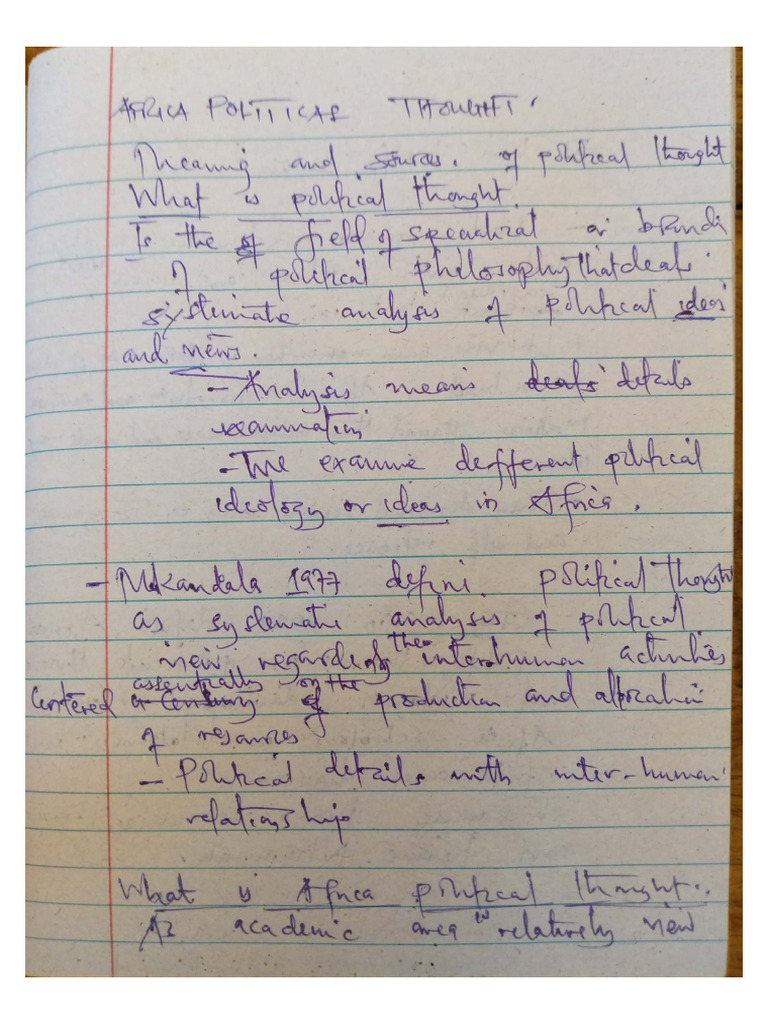 AFRICA POLITICAL THOUGHT.
Meaning and sources. of political thought
What is political thought.
Is the field of specializat or branch
of political philosophy that deals
systematic analysis of political ideas
and views.
- Analysis means deals details
examination
- The examine defferent political
ideology or ideas in Africa.
- Mukandala 1977 define political thought
as systematic analysis of political
view regarding the inter-human activities
assentially on the
Centered of production and allocation
of resources
- Political details with inter-human
relationship
What is Africa political thought.
As academic area is relatively new